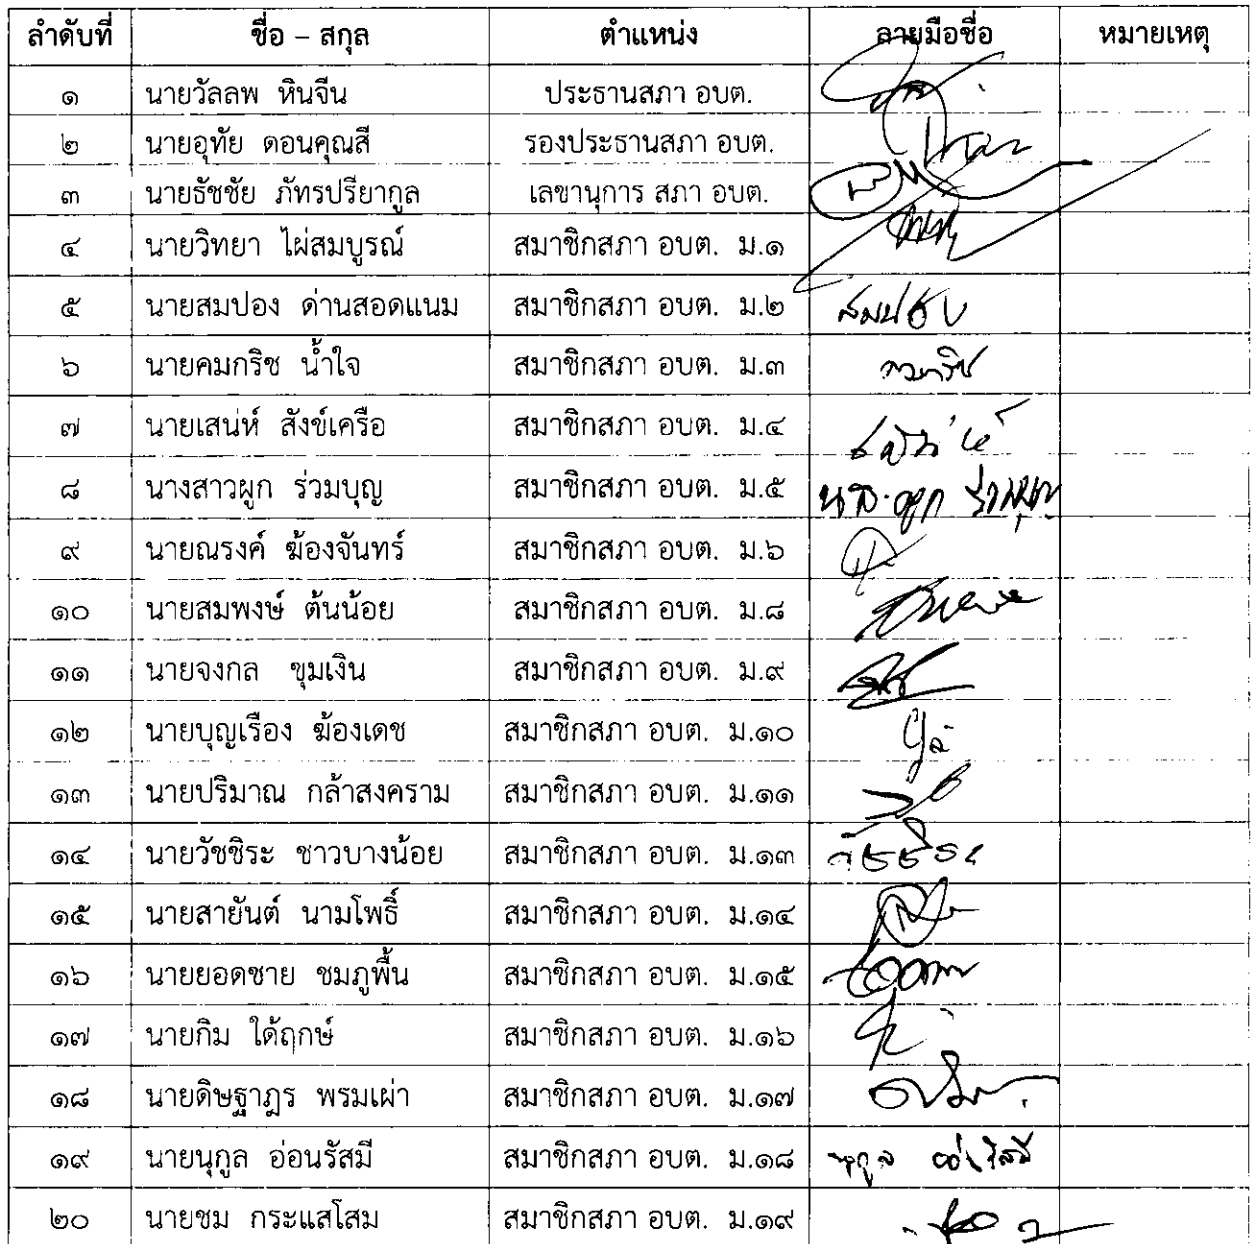 ลำดับที่ ชื่อ – สกุล ตำแหน่ง ลายมือชื่อ หมายเหตุ
๑ นายวัลลพ หินจีน ประธานสภา อบต.
๒ นายอุทัย ดอนคุณสี รองประธานสภา อบต.
๓ นายธัชชัย ภัทรปรียากูล เลขานุการ สภา อบต.
๔ นายวิทยา ไผ่สมบูรณ์ สมาชิกสภา อบต. ม.๑
๕ นายสมปอง ด่านสอดแนม สมาชิกสภา อบต. ม.๒ สมปอง
๖ นายคมกริช น้ำใจ สมาชิกสภา อบต. ม.๓ คมกริช
๗ นายเสน่ห์ สังข์เครือ สมาชิกสภา อบต. ม.๔
๘ นางสาวผูก ร่วมบุญ สมาชิกสภา อบต. ม.๕ น.ส.ผูก ร่วมบุญ
๙ นายณรงค์ ฆ้องจันทร์ สมาชิกสภา อบต. ม.๖
๑๐ นายสมพงษ์ ต้นน้อย สมาชิกสภา อบต. ม.๘
๑๑ นายจงกล ขุมเงิน สมาชิกสภา อบต. ม.๙
๑๒ นายบุญเรือง ฆ้องเดช สมาชิกสภา อบต. ม.๑๐
๑๓ นายปริมาณ กล้าสงคราม สมาชิกสภา อบต. ม.๑๑
๑๔ นายวัชชิระ ชาวบางน้อย สมาชิกสภา อบต. ม.๑๓ วัชชิระ
๑๕ นายสายันต์ นามโพธิ์ สมาชิกสภา อบต. ม.๑๔
๑๖ นายยอดชาย ชมภูพื้น สมาชิกสภา อบต. ม.๑๕
๑๗ นายกิม ใด้ฤกษ์ สมาชิกสภา อบต. ม.๑๖
๑๘ นายดิษฐาฎร พรมเผ่า สมาชิกสภา อบต. ม.๑๗
๑๙ นายนุกูล อ่อนรัสมี สมาชิกสภา อบต. ม.๑๘ นุกูล อ่อนรัสมี
๒๐ นายชม กระแสโสม สมาชิกสภา อบต. ม.๑๙